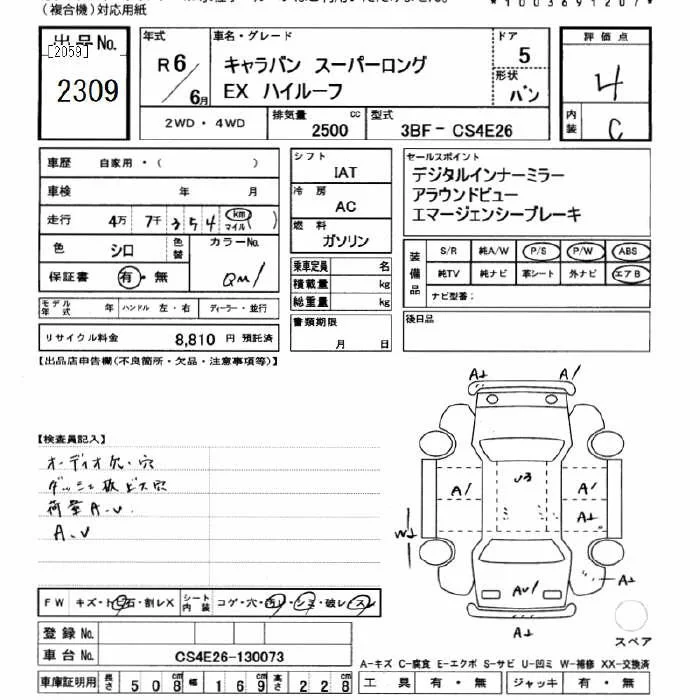 (複合機)対応用紙
*1003691207*
出品No.
[2059]
2309
年式
R6/6月
車名・グレード
キャラバン スーパーロング
EX ハイルーフ
ドア
5
形状
バン
評価点
4
内装
C
2WD・4WD
排気量
2500 cc
型式
3BF-CS4E26
車歴 自家用・( )
車検 年 月
走行 4万 7千 354 km マイル ( )
色 シロ 色替
カラーNo.
QM1
保証書 有・無
モデル年式 年 ハンドル 左・右 ディーラー・並行
リサイクル料金 8,810 円 預託済
シフト
IAT
冷房
AC
燃料
ガソリン
乗車定員 名
積載量 kg
総重量 kg
書類期限
月 日
セールスポイント
デジタルインナーミラー
アラウンドビュー
エマージェンシーブレーキ
装備品
S/R 純A/W P/S P/W ABS
純TV 純ナビ 革シート 外ナビ エアB
ナビ型番:
後日品
【出品店申告欄(不良箇所・欠品・注意事項等)】
【検査員記入】
オーディオ欠・穴
ダッシュ板ビス穴
荷室A.U
A.U
A1
A1
U3
A1
A1
W1
A1
AU1
A1
A1
スペア
FW キズ・ト石・割レX シート内装 コゲ・穴・汚レ・シミ・破レ・スレ
登録No.
車台No. CS4E26-130073
A-キズ C-腐食 E-エクボ S-サビ U-凹ミ W-補修 XX-交換済
車庫証明用 長さ 508cm 幅 169cm 高さ 228cm
工具 有・無 ジャッキ 有・無